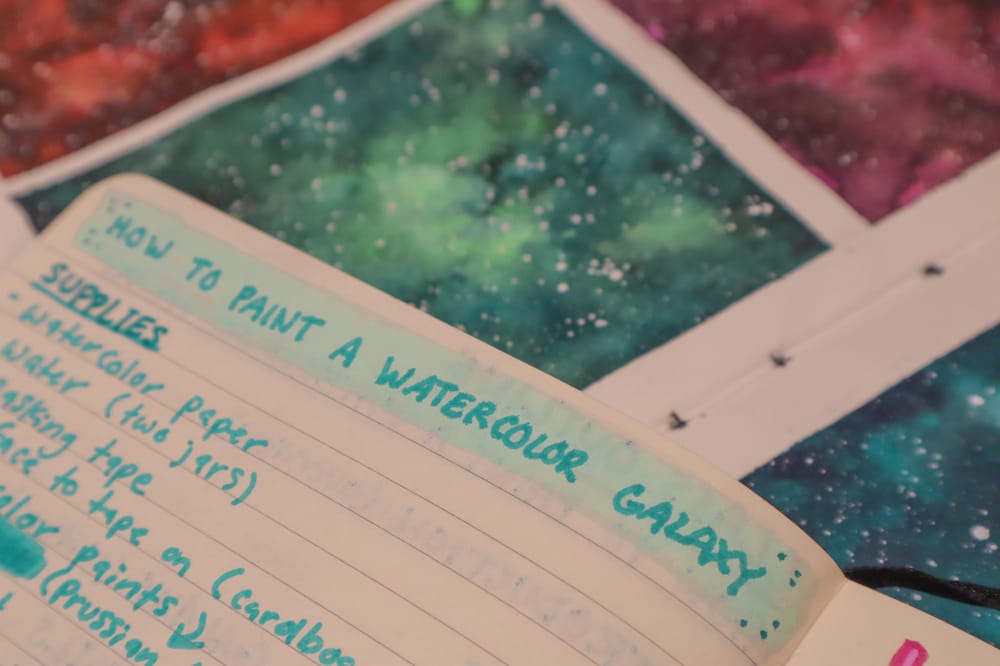 HOW TO PAINT A WATERCOLOR GALAXY
SUPPLIES
- watercolor paper
water (two jars)
masking tape
face to tape on (cardboa
color paints
(Prussian